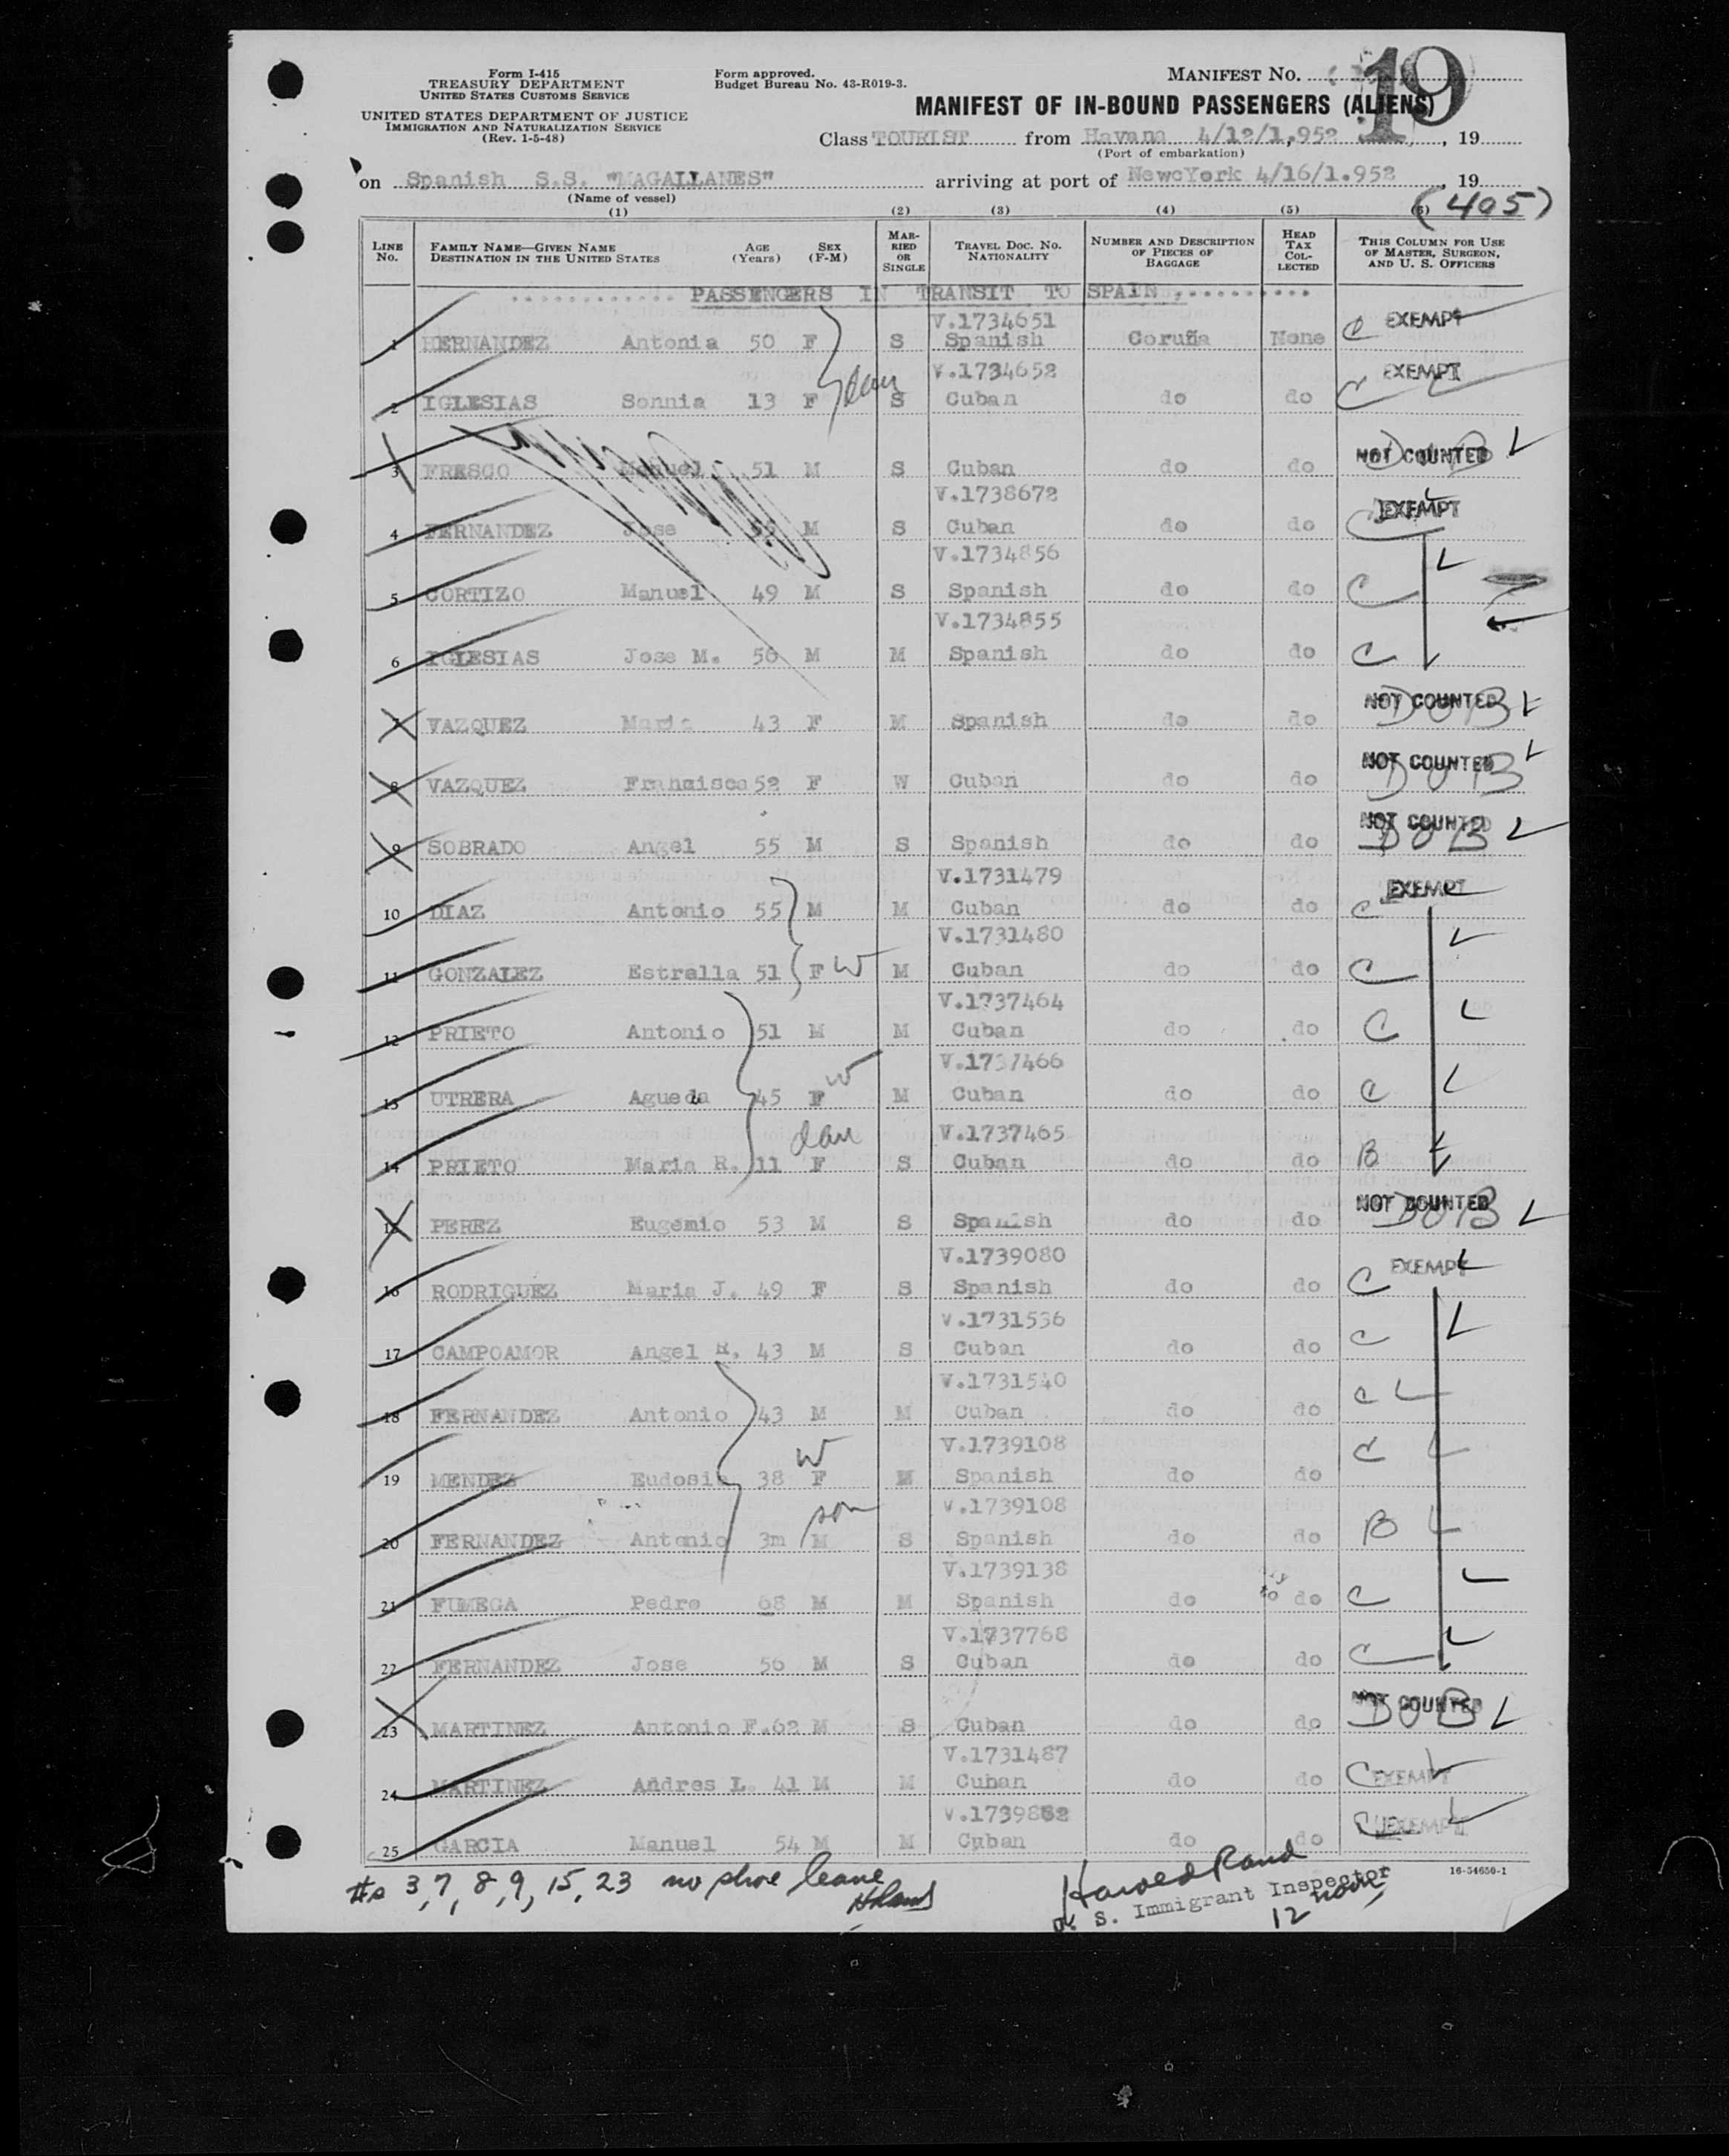 Form I-415
TREASURY DEPARTMENT
UNITED STATES CUSTOMS SERVICE
UNITED STATES DEPARTMENT OF JUSTICE
IMMIGRATION AND NATURALIZATION SERVICE
(Rev. 1-5-48)
Form approved.
Budget Bureau No. 43-R019-3.
MANIFEST No. 19
MANIFEST OF IN-BOUND PASSENGERS (ALIENS)
Class TOURIST from Havana 4/12/1,952, 19
(Port of embarkation)
on Spanish S.S. "MAGALLANES" arriving at port of NewcYork 4/16/1.952, 19
(Name of vessel)
(405)
(1) (2) (3) (4) (5) (6)
LINE No. FAMILY NAME—GIVEN NAME DESTINATION IN THE UNITED STATES AGE (Years) SEX (F-M) MARRIED OR SINGLE TRAVEL DOC. NO. NATIONALITY NUMBER AND DESCRIPTION OF PIECES OF BAGGAGE HEAD TAX COLLECTED THIS COLUMN FOR USE OF MASTER, SURGEON, AND U. S. OFFICERS
............ PASSENGERS IN TRANSIT TO SPAIN ..........
V.1734651 EXEMPT
1 HERNANDEZ Antonia 50 F S Spanish Coruña None C
V.1734652 EXEMPT
2 IGLESIAS Sonnia 13 F dau S Cuban do do C
NOT COUNTED
3 FRESCO Manuel 51 M S Cuban do do DOB
V.1738672 EXEMPT
4 FERNANDEZ Jose M S Cuban do do C
V.1734856
5 CORTIZO Manuel 49 M S Spanish do do C
V.1734855
6 IGLESIAS Jose M. 50 M M Spanish do do C
NOT COUNTED
7 VAZQUEZ Maria 43 F M Spanish do do DOB
NOT COUNTED
8 VAZQUEZ Francisca 52 F W Cuban do do DOB
NOT COUNTED
9 SOBRADO Angel 55 M S Spanish do do DOB
V.1731479 EXEMPT
10 DIAZ Antonio 55 M M Cuban do do C
V.1731480
11 GONZALEZ Estrella 51 F W M Cuban do do C
V.1737464
12 PRIETO Antonio 51 M M Cuban do do C
V.1737466
13 UTRERA Agueda 45 F W M Cuban do do C
V.1737465
14 PRIETO Maria R. 11 F dau S Cuban do do B
NOT COUNTED
15 PEREZ Eugenio 53 M S Spanish do do DOB
V.1739080 EXEMPT
16 RODRIGUEZ Maria J. 49 F S Spanish do do C
V.1731536
17 CAMPOAMOR Angel R. 43 M S Cuban do do C
V.1731540
18 FERNANDEZ Antonio 43 M M Cuban do do C
V.1739108
19 MENDEZ Eudosia 38 F W M Spanish do do C
V.1739108
20 FERNANDEZ Antonio 3m M son S Spanish do do B
V.1739138
21 FUMEGA Pedro 68 M M Spanish do do C
V.1737768
22 FERNANDEZ Jose 56 M S Cuban do do C
NOT COUNTED
23 MARTINEZ Antonio F. 62 M S Cuban do do DOB
V.1731487
24 MARTINEZ Andres L. 41 M M Cuban do do C EXEMPT
V.1739862
25 GARCIA Manuel 54 M M Cuban do do C EXEMPT
#s 3, 7, 8, 9, 15, 23 no shore leave
HRand
Harold Rand
U. S. Immigrant Inspector
12 noon
16-54650-1